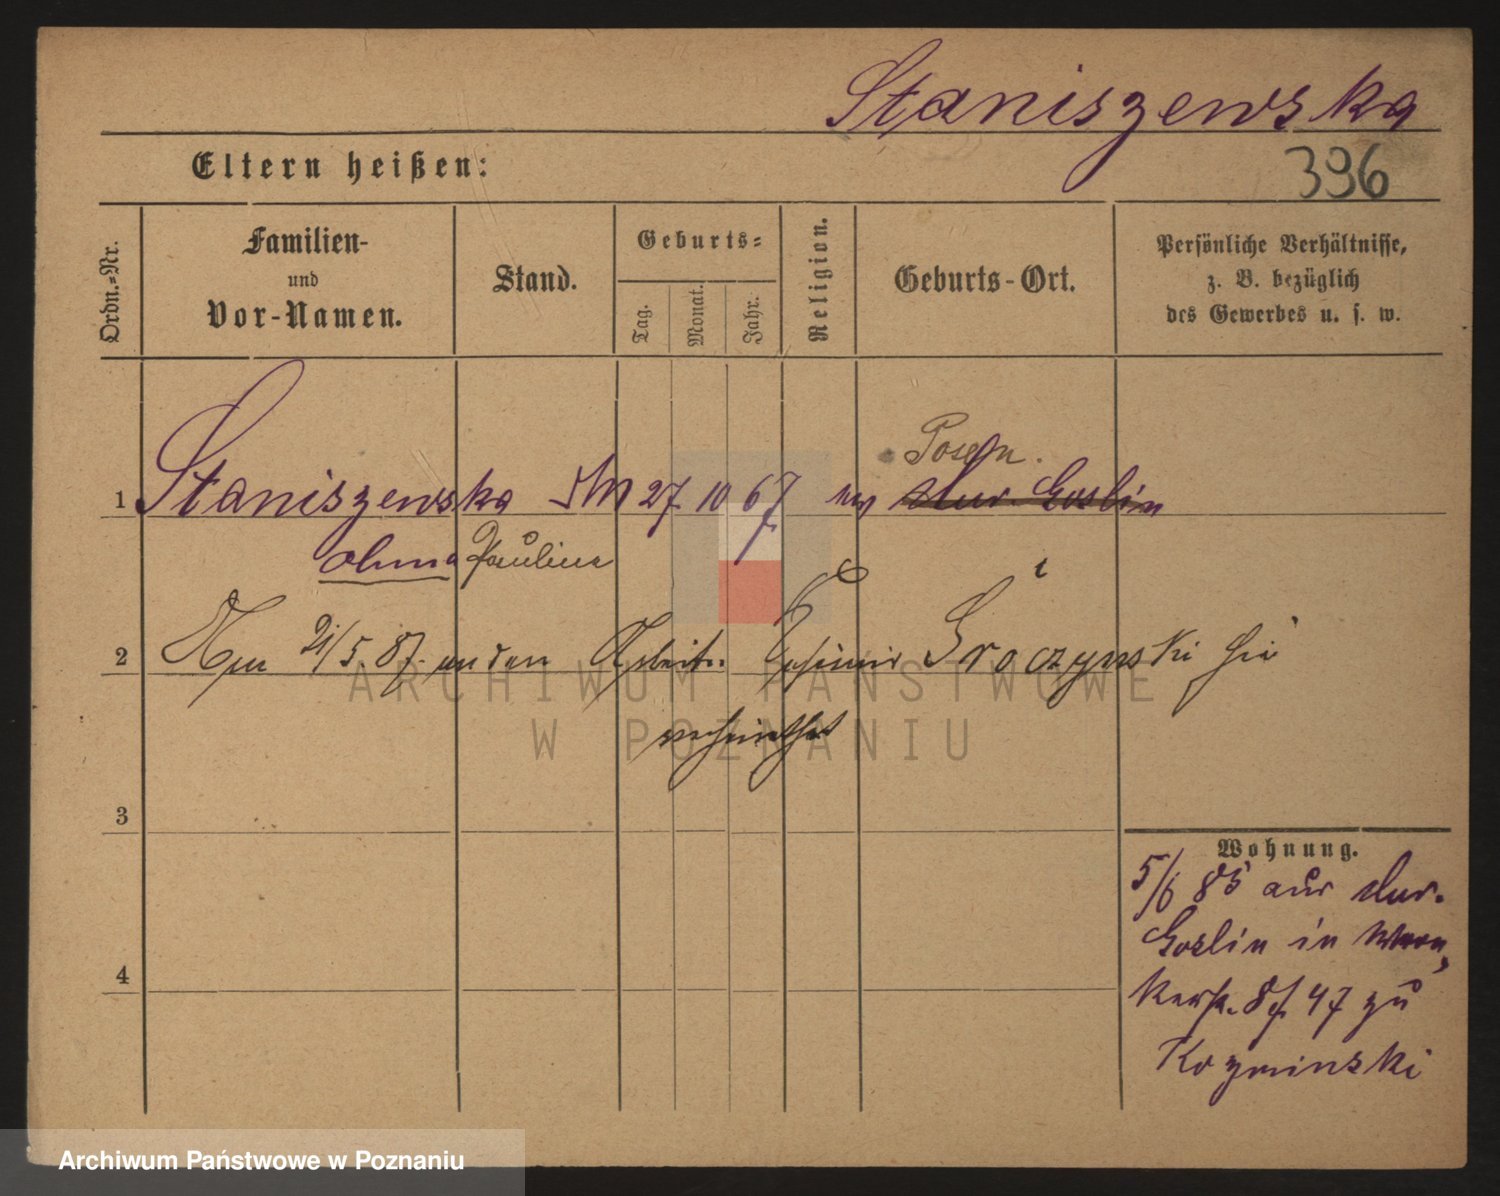 Staniszewska
Eltern heißen:
396
Ordn.=Nr.
Familien-
und
Vor-Namen.
Stand.
Geburts=
Tag.
Monat.
Jahr.
Religion.
Geburts-Ort.
Persönliche Verhältnisse,
z. B. bezüglich
des Gewerbes u. s. w.
Posen.
1 Staniszewska 27 10 67 Mur. Goslin
Pauline
2 21/5 87. an den Arbeit. Casimir Groczynski hie
verheirathet
3
4
Wohnung.
5/6 85 aus Mur.
Goslin in
47 zu
Kozminski
ARCHIWUM PAŃSTWOWE
W POZNANIU
Archiwum Państwowe w Poznaniu